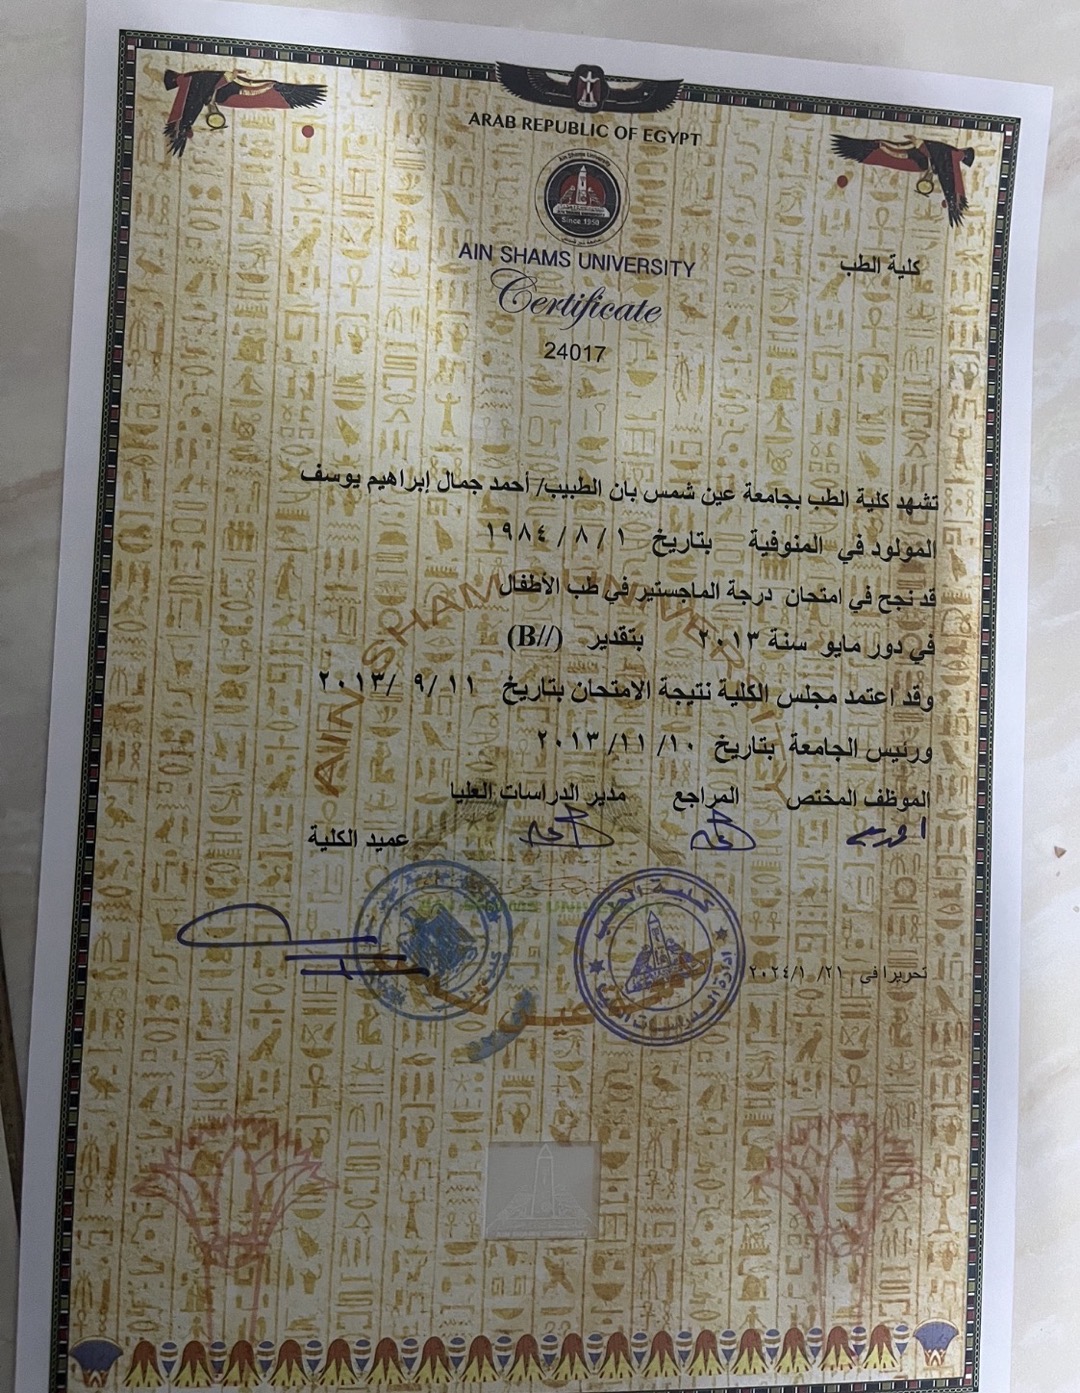 ARAB REPUBLIC OF EGYPT
Ain Shams University
Since 1950
AIN SHAMS UNIVERSITY
كلية الطب
Certificate
24017
تشهد كلية الطب بجامعة عين شمس بان الطبيب/ أحمد جمال إبراهيم يوسف
المولود في المنوفية بتاريخ ١ / ٨ / ١٩٨٤
قد نجح في امتحان درجة الماجستير في طب الأطفال
في دور مايو سنة ٢٠١٣ بتقدير (B//)
وقد اعتمد مجلس الكلية نتيجة الامتحان بتاريخ ١١ /٩ /٢٠١٣
ورئيس الجامعة بتاريخ ١٠ /١١ /٢٠١٣
الموظف المختص المراجع مدير الدراسات العليا
عميد الكلية
كلية الطب
تحريرا في ٢١ /١ /٢٠٢٤
AIN SHAMS UNIVERSITY
عين